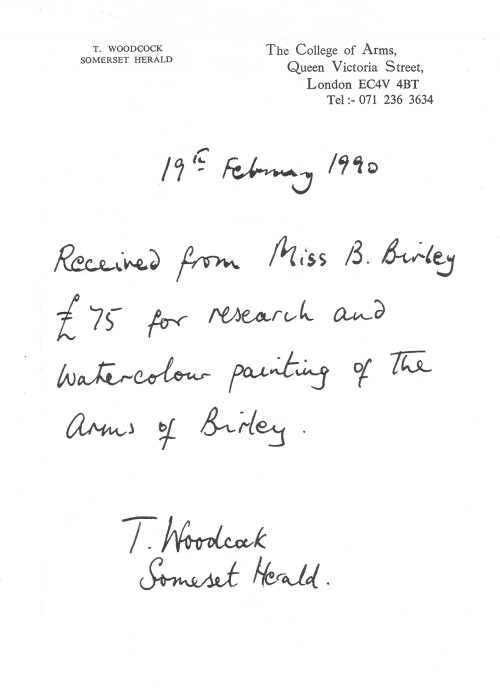 T. WOODCOCK
SOMERSET HERALD
The College of Arms,
Queen Victoria Street,
London EC4V 4BT
Tel :- 071 236 3634
19th February 1990
Received from Miss B. Birley
£75 for research and
watercolour painting of the
Arms of Birley.
T. Woodcock
Somerset Herald.